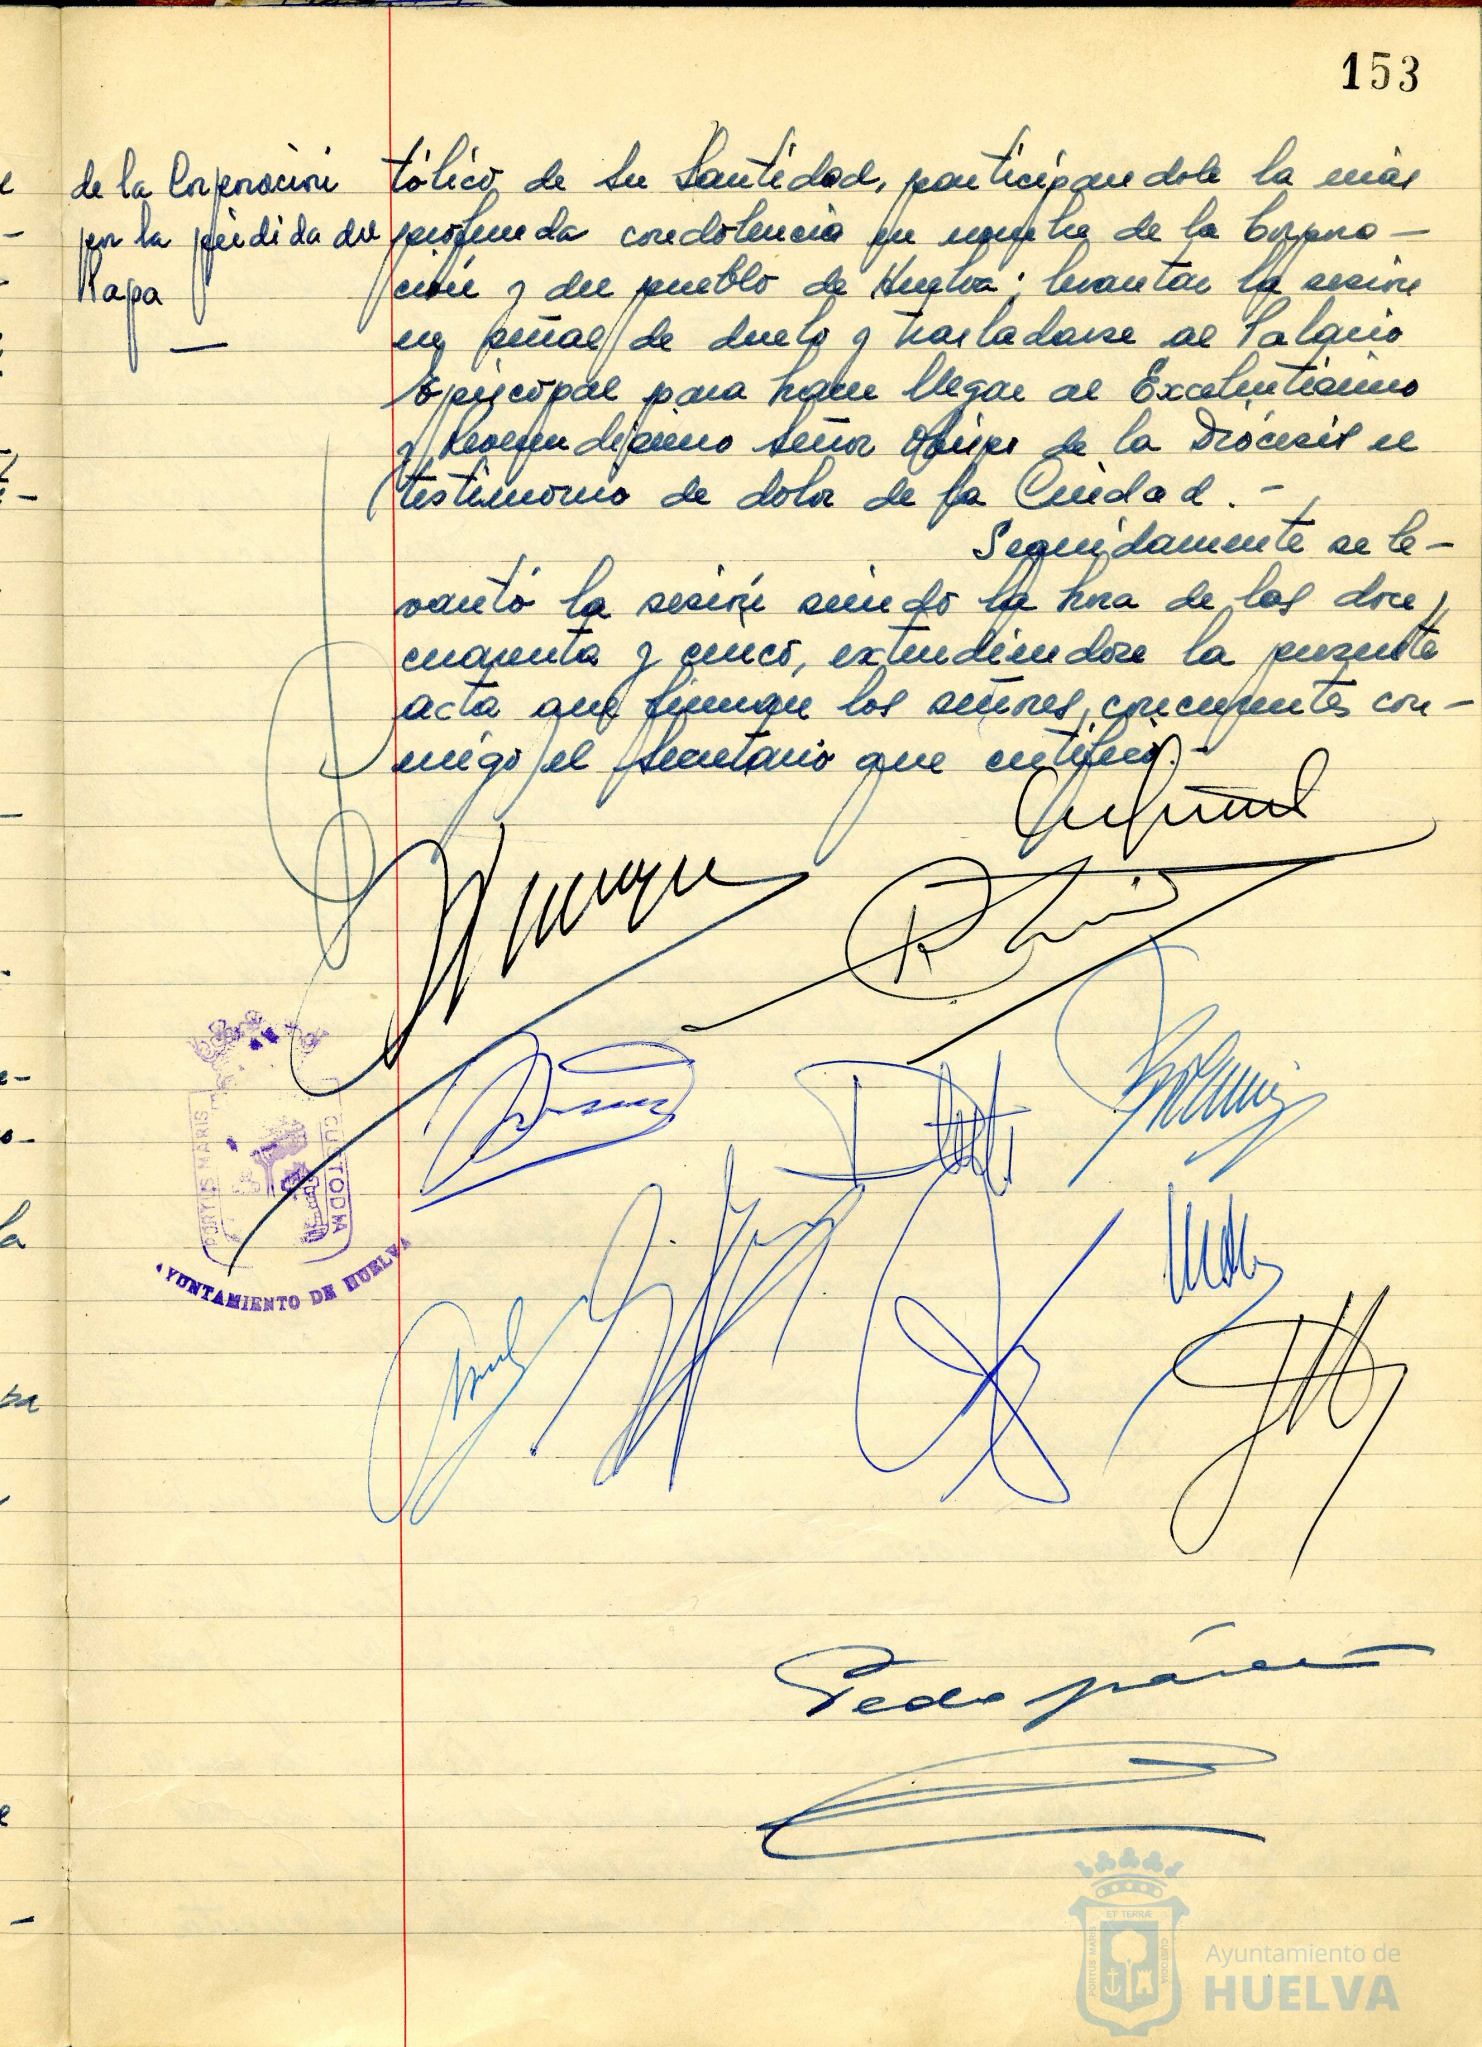 153
de la Corporación
por la pérdida del
Papa
tólico de Su Santidad, participandole la más
profunda condolencia en nombre de la Corpora-
ción y del pueblo de Huelva; levantar la sesión
en señal de duelo y trasladarse al Palacio
Episcopal para hacer llegar al Excelentísimo
y Reverendísimo Señor Obispo de la Diócesis el
testimonio de dolor de la Ciudad.-
Seguidamente se le-
vantó la sesión siendo la hora de las doce y
cuarenta y cinco, extendiendose la presente
acta que firman los señores concurrentes con-
migo el Secretario que certifico.-
PORTUS MARIS
CUSTODIA
AYUNTAMIENTO DE HUELVA
Pedro
ET TERRÆ
PORTUS MARIS
CUSTODIA
Ayuntamiento de
HUELVA